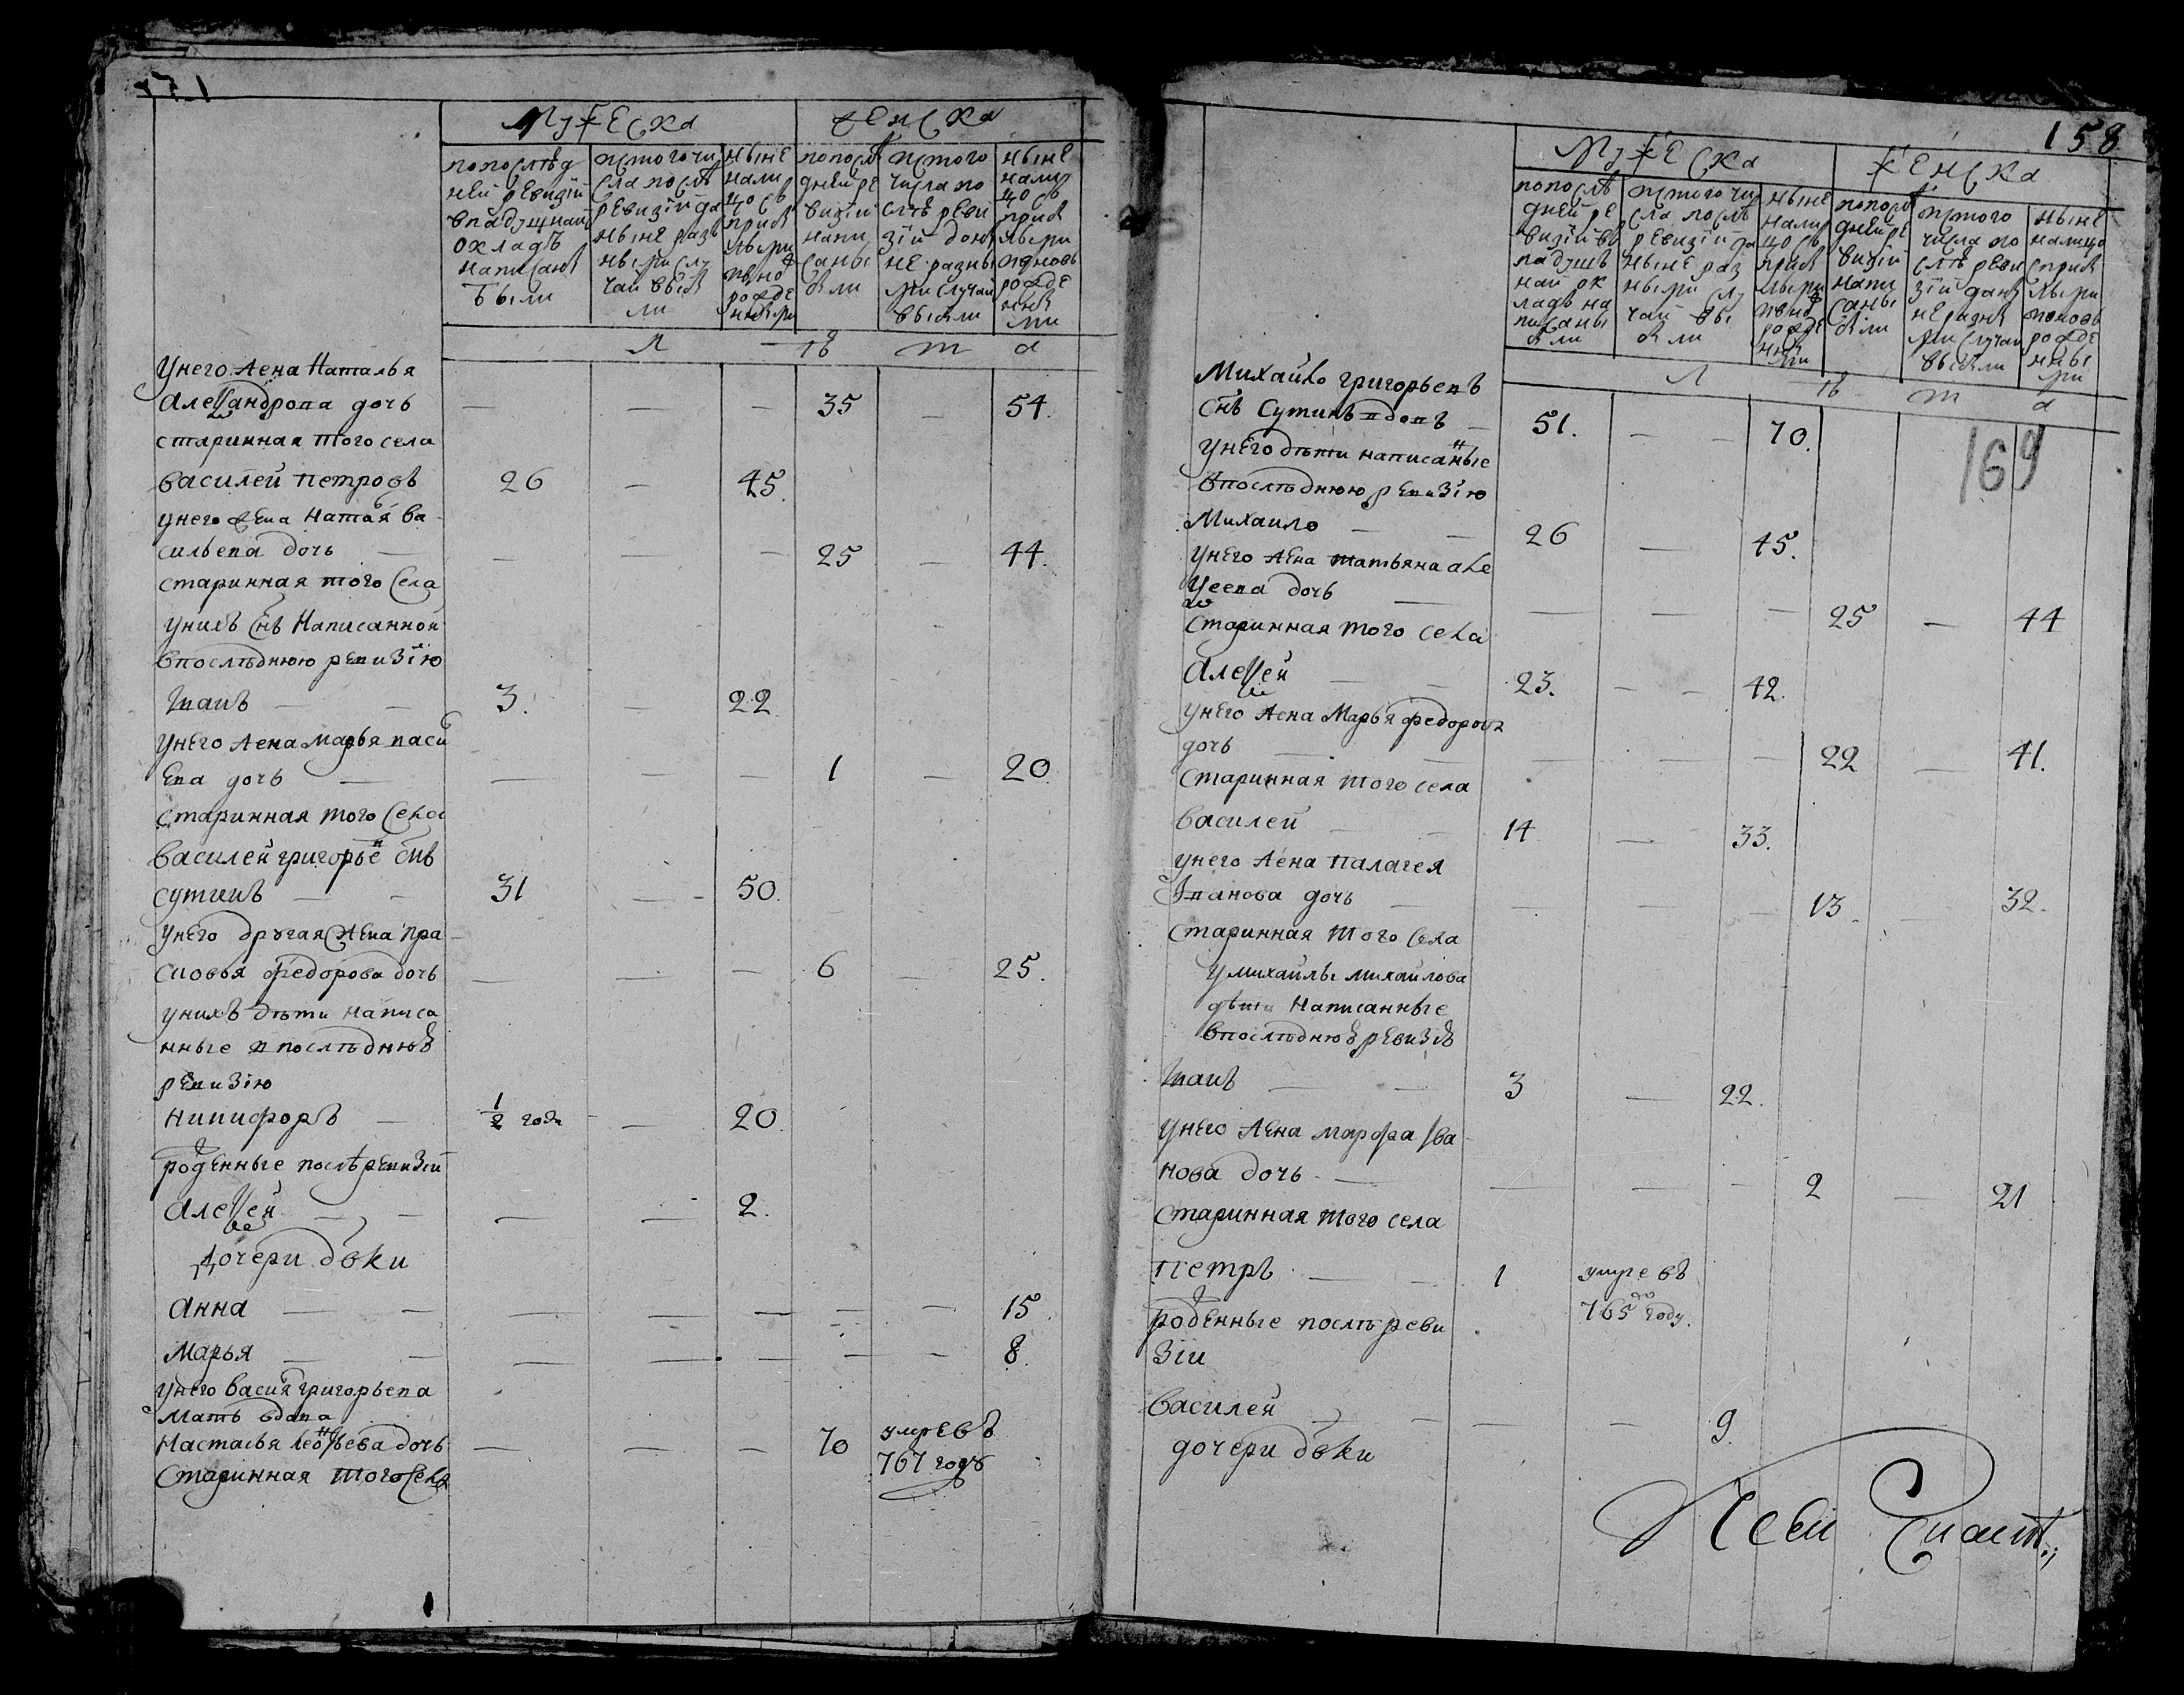 Мужеска женска
попослѣд ней ревизии вподушнаи окладъ написаны были
истого чи сла послѣ ревизии до ныне раз ными слу чаи выбы ли
ныне нали цо съ прибы лыми ивно рожде ными
попослѣ дней ре визии напи саны были
истого числа по слѣ реви зии доны не разны ми случаи выбыли
ныне нали цо съ прибы лыми ивновь рожде ными
л ѣ т а
Унего жена Наталья
Александрова дочь — — — 35 — 54.
старинная того села
Василей Петровъ 26 — 45.
унего жена Наталья Ва
сильева дочь — — — 25 — 44.
старинная того села
унихъ снъ Написанной
впослѣднюю ревизию
Иванъ — 3. — 22
Унего жена Марья васил
ева дочь — — — 1 — 20.
старинная того села
Василей григорьевъ снъ
сутинъ — 31 — 50.
унего другая жена Пра
сковья федорова дочь — — — 6 — 25.
унихъ дѣти написа
нные в послѣднюю
ревизию
Никифоръ — 1/2 года — 20.
рожденные послѣ ревизии
Алексей — — — 2.
дочери дѣвки
Анна — — — — — 15.
Марья — — — — — 8.
унего Василья григорьева
мать вдова
Настасья Леонтьева дочь — — — 70 умре въ
767 годѣ
Старинная того села
158
Мужеска женска
попослѣ дней ре визии въ подушъ наи ок ладъ на писаны были
истого чи сла послѣ ревизии до ныне раз ными слу чаи вы были
ныне нали цо съ прибы лыми ивно рожде ными
попослѣ дней ре визии напи саны были
истого числа по слѣ реви зии доны не разны ми случаи выбыли
ныне налицо сприбы лыми ивновь рожде ными
л ѣ т а
169
Михайло григорьевъ
снъ Сутинъ вдовъ — 51. — — 70.
унего дѣти написанные
впослѣднюю ревизию
Михаило — 26 — 45.
унего жена татьяна але
ксеева дочь — — — 25 — 44
старинная того села
Алексей — 23. — — 42.
унего жена Марья федорова
дочь — — — 22 — 41.
старинная того села
Василей — 14 — 33.
унего жена Палагея
Иванова дочь — — — 13. — 32.
старинная того села
у михаилы михаилова
дѣти Написанные
впослѣднюю ревизию
Иванъ — 3 — 22.
унего жена марфа Ива
нова дочь — — — 2 — 21
старинная того села
Петръ — 1 умре въ
765 году.
рожденные послѣ реви
зии
Василей — — — 9.
дочери дѣвки